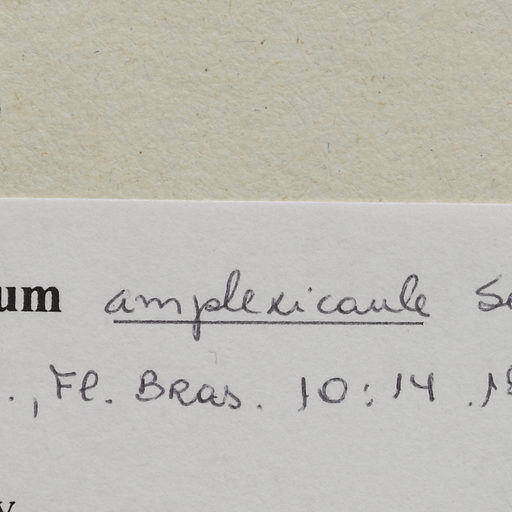 um amplexicaule S
., Fl. Bras. 10:14 .18
y